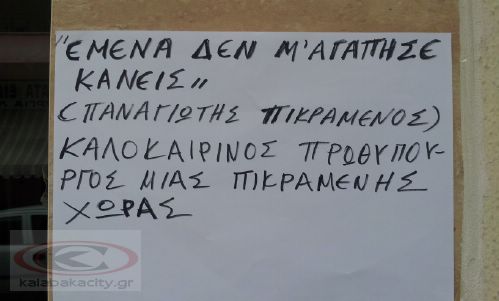 "ΕΜΕΝΑ ΔΕΝ Μ'ΑΓΑΠΗΣΕ
ΚΑΝΕΙΣ"
(ΠΑΝΑΓΙΩΤΗΣ ΠΙΚΡΑΜΕΝΟΣ)
ΚΑΛΟΚΑΙΡΙΝΟΣ ΠΡΩΘΥΠΟΥ-
ΡΓΟΣ ΜΙΑΣ ΠΙΚΡΑΜΕΝΗΣ
ΧΩΡΑΣ
kalabakacity.gr